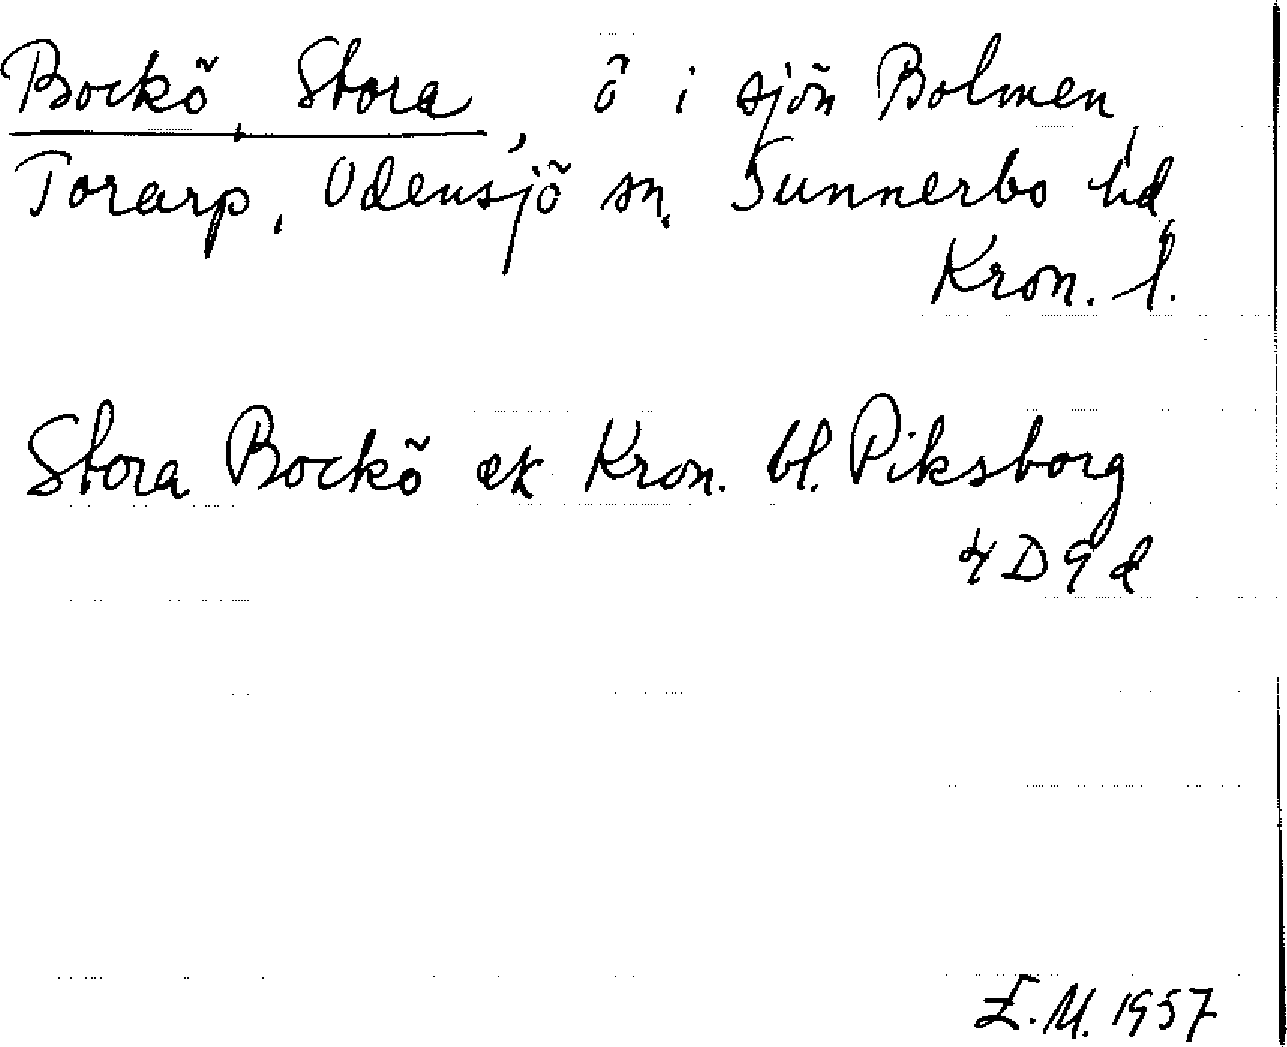 Bockö, Stora, ö i sjön Bolmen,
Torarp, Odensjö sn, Sunnerbo hd,
Kron. l.
Stora Bockö ek Kron. bl. Piksborg
4D9d
E.M. 1957